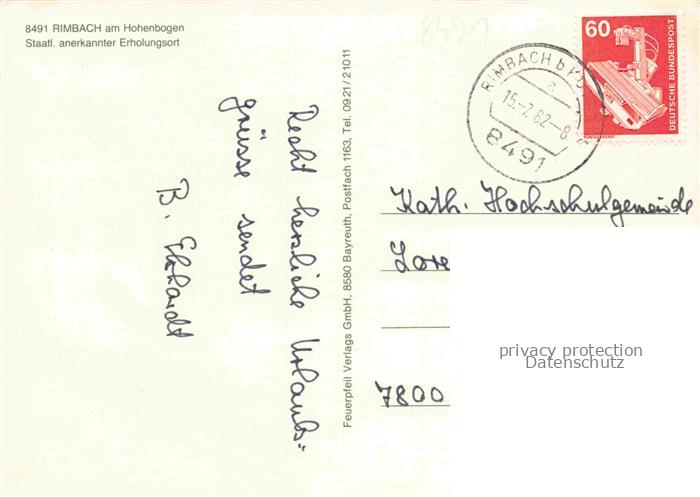 8491 RIMBACH am Hohenbogen
Staatl. anerkannter Erholungsort
Recht herzliche Urlaubs-
grüsse sendet
B. Ekhardt
Feuerpfeil Verlags GmbH, 8580 Bayreuth, Postfach 1163, Tel. 0921/21011
8491
RIMBACH b
15.-7.82-8
8491
60
DEUTSCHE BUNDESPOST
Kath. Hochschulgemeinde
Lore
7800
privacy protection
Datenschutz